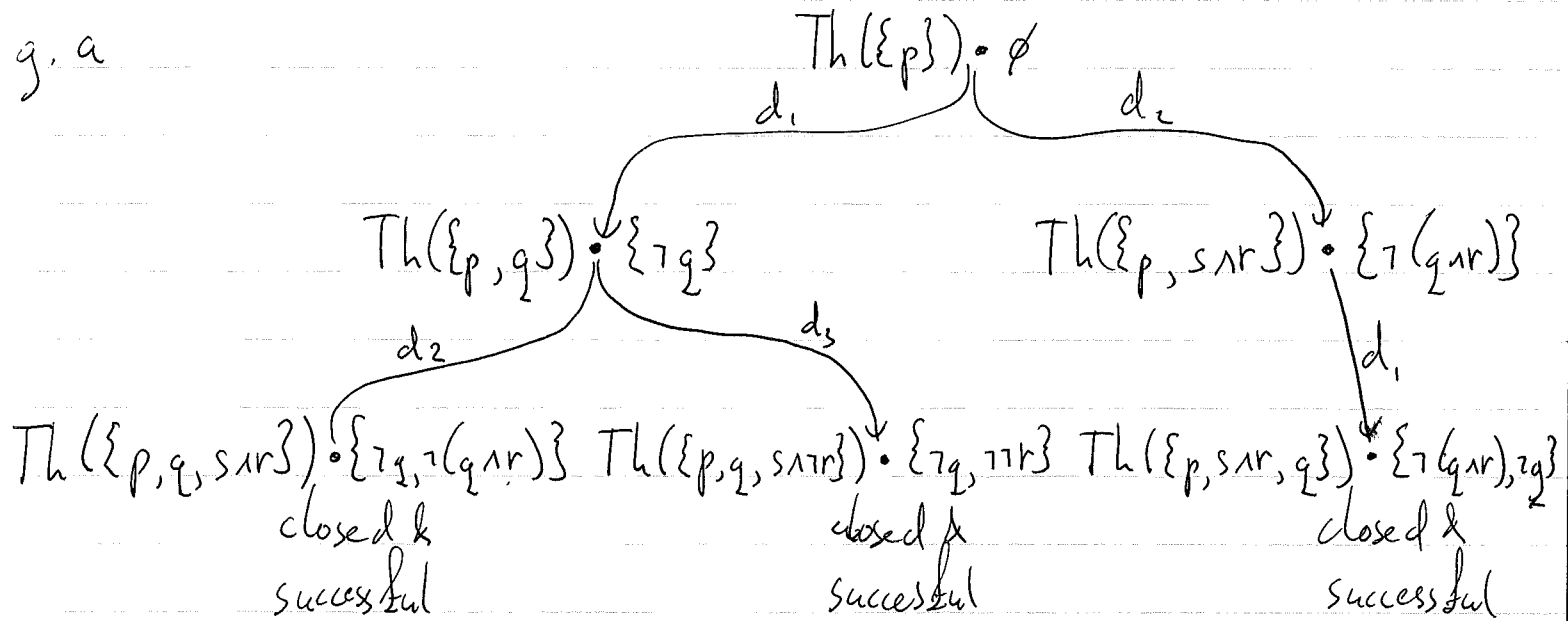 g. a
Th({p}) • ø
d₁ d₂
Th({p, q}) • {¬q} Th({p, s∧r}) • {¬(q∧r)}
d₂ d₃ d₁
Th({p, q, s∧r}) • {¬q, ¬(q∧r)} Th({p, q, s∧¬r}) • {¬q, ¬¬r} Th({p, s∧r, q}) • {¬(q∧r), ¬q}
closed & closed & closed &
successful succesful successful